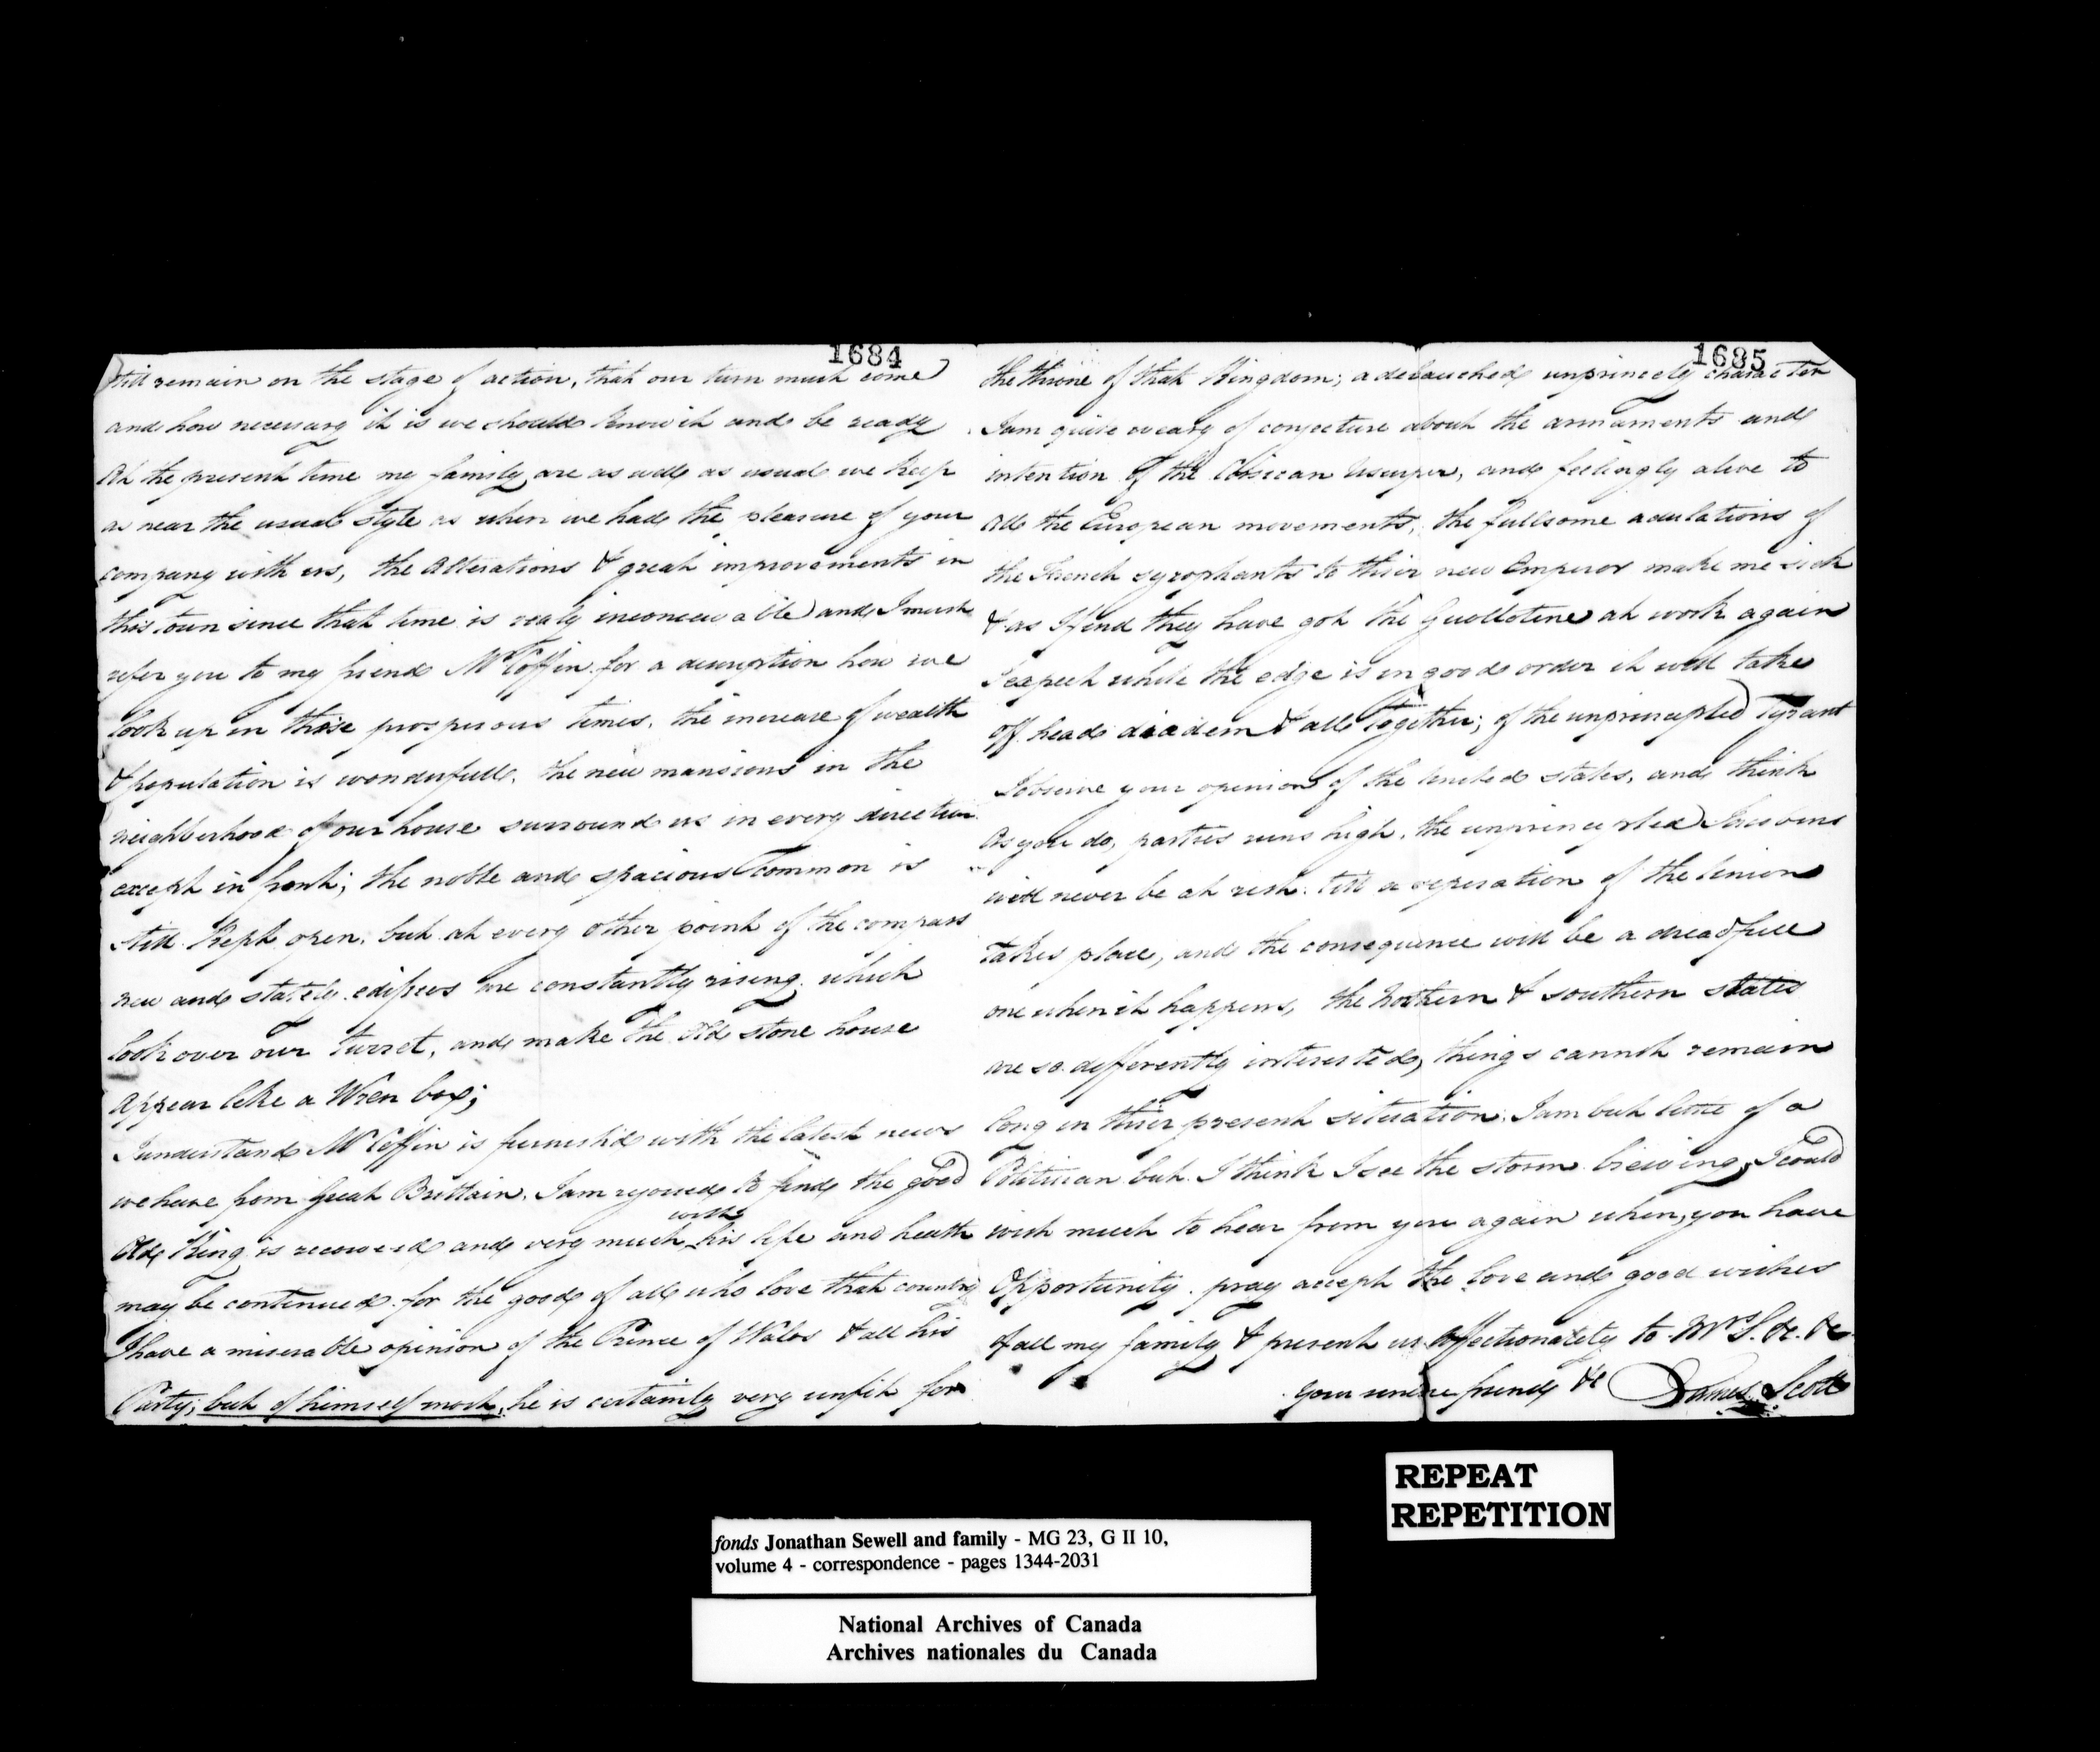 1684
still remain on the stage of action, that our turn must come
and how necessary it is we should know it and be ready
At the present time my family are as well as usual we keep
as near the usual style as when we had the pleasure of your
company with us, the Alterations & great improvements in
this town since that time is realy inconceivable and I must
refer you to my friend Mr Coffin for a discription how we
look up in these prosperous times, the increase of wealth
& population is wonderfull, the new mansions in the
neighborhood of our house surround us in every direction
except in front; the noble and spacious Common is
still Kept open, but at every other point of the compass
new and stately edifices are constantly rising which
look over our turret, and make the old stone house
appear like a Wren box;
I understand Mr Coffin is furnish'd with the latest news
we have from Great Brittain. I am rejoiced to find the good
Old King is recovered and very much wish his life and health
may be continued for the good of all who love that country
I have a miserable opinion of the Prince of Wales & all his
Party; but of himself most, he is certainly very unfit for
1685
the throne of that Kingdom; a debauched unprincely character
I am quite weary of conjecture about the armaments and
intention of the Corsican Usurper, and feelingly alive to
all the European movements, the fullsome adulations of
the French sycophants to their new Emperor make me sick
& as I find they have got the Guollotine at work again
I expect while the edge is in good order it will take
off head diadem & all Together; of the unprincipled Tyrant
I observe your opinion of the United States, and think
As you do, parties runs high, the unprincipled Jacobins
will never be at rest till a seperation of the Union
takes place, and the consequence will be a dreadfull
one when it happens, the Northern & southern states
are so differently interested, things cannot remain
long in their present situation. I am but little of a
Politician but I think I see the storm brewing, I could
wish much to hear from you again when you have
Opportunity. pray accept the love and good wishes
of all my family & present us affectionately to Mrs S. &c. &c
your sincere friend &c James Scott
REPEAT
REPETITION
fonds Jonathan Sewell and family - MG 23, G II 10,
volume 4 - correspondence - pages 1344-2031
National Archives of Canada
Archives nationales du Canada